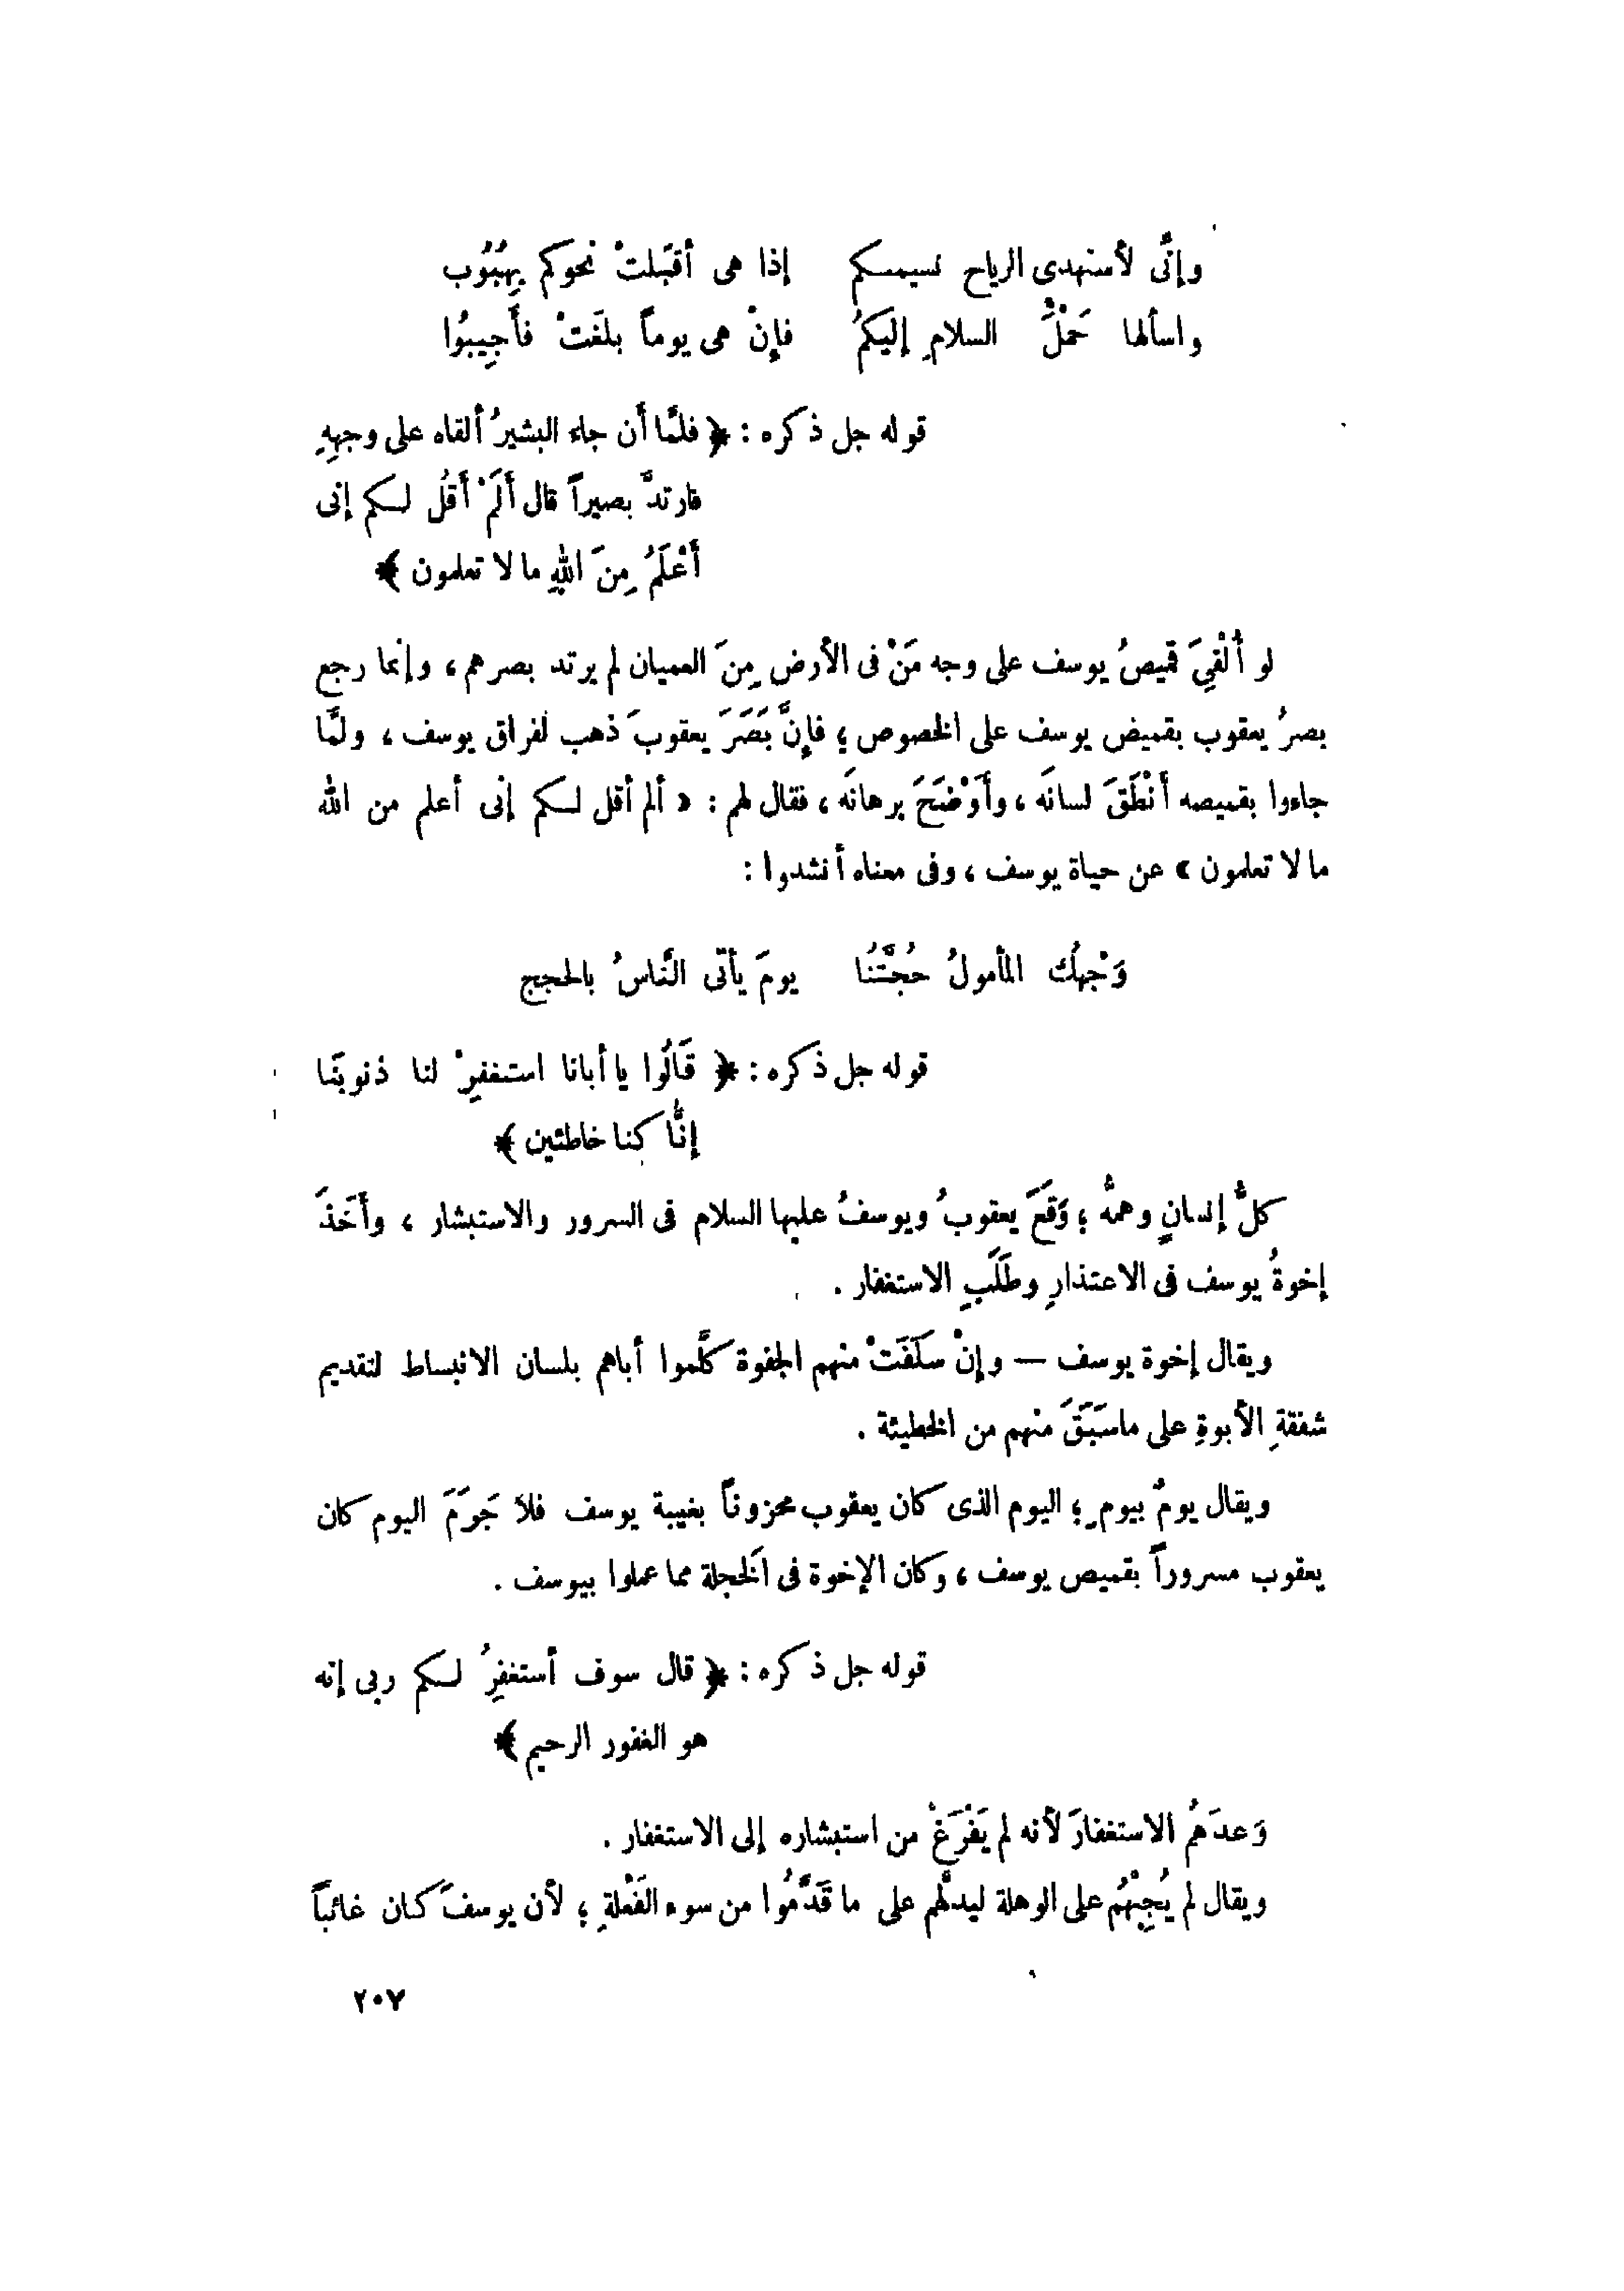 وإنَّى لأستهدى الرياح نسيمسكم إذا هى أقبَلتْ نحوكم بِهُبُوب
واسألها حَمْلَ السلامِ إليكمُ فإنْ هى يوماً بلغَتْ فأَجِيبُوا
قوله جل ذكره : ﴿ فلمَّا أن جاء البشيرُ ألقاه على وجهِهِ
فارتدَّ بصيراً قال أَلَمْ أَقُل لسكم إنى
أَعْلَمُ مِنَ اللهِ ما لا تعلمون ﴾
لو أُلْقِيَ قميصُ يوسف على وجه مَنْ فى الأرض مِنَ العميان لم يرتد بصرهم ، وإنما رجع
بصرُ يعقوب بقميض يوسف على الخصوص ؛ فإنَّ بَصَرَ يعقوبَ ذهب لفراق يوسف ، ولمَّا
جاءوا بقميصه أَنْطَقَ لسانَه ، وأَوْضَحَ برهانَه ، فقال لهم : « ألم أقل لسكم إنى أعلم من الله
ما لا تعلمون » عن حياة يوسف ، وفى معناه أنشدوا :
وَجْهُك المأمولُ حُجَّتُنا يومَ يأتى النَّاسُ بالحجج
قوله جل ذكره : ﴿ قَالُوا يا أبانا استغفِرْ لنا ذنوبَنَا
إنَّا كنا خاطئين ﴾
كلُّ إنسانٍ وهمُّه ؛ وَقَعَ يعقوبُ ويوسفُ عليهما السلام فى السرور والاستبشار ، وأَخَذَ
إخوةُ يوسف فى الاعتذارِ وطَلَبِ الاستغفار .
ويقال إخوة يوسف — وإنْ سَلَفَتْ منهم الجفوة كلَّموا أباهم بلسان الانبساط لتقديم
شفقةِ الأبوةِ على ماسَبَقَ منهم من الخطيئة .
ويقال يومٌ بيومٍ ؛ اليوم الذى كان يعقوب محزوناً بغيبة يوسف فلا جَرَمَ اليوم كان
يعقوب مسروراً بقميص يوسف ، وكان الإخوة فى الخَجلة مما عملوا بيوسف .
قوله جل ذكره : ﴿ قال سوف أستغفِرُ لسكم ربى إنه
هو الغفور الرحيم ﴾
وَعدَهُم الاستغفارَ لأنه لم يَفْرَغْ من استبشاره إلى الاستغفار .
ويقال لم يُجِبْهُم على الوهلة ليدلَّهم على ما قَدَّمُوا من سوء الفَعْلةِ ؛ لأن يوسفَ كان غائباً
٢٠٧